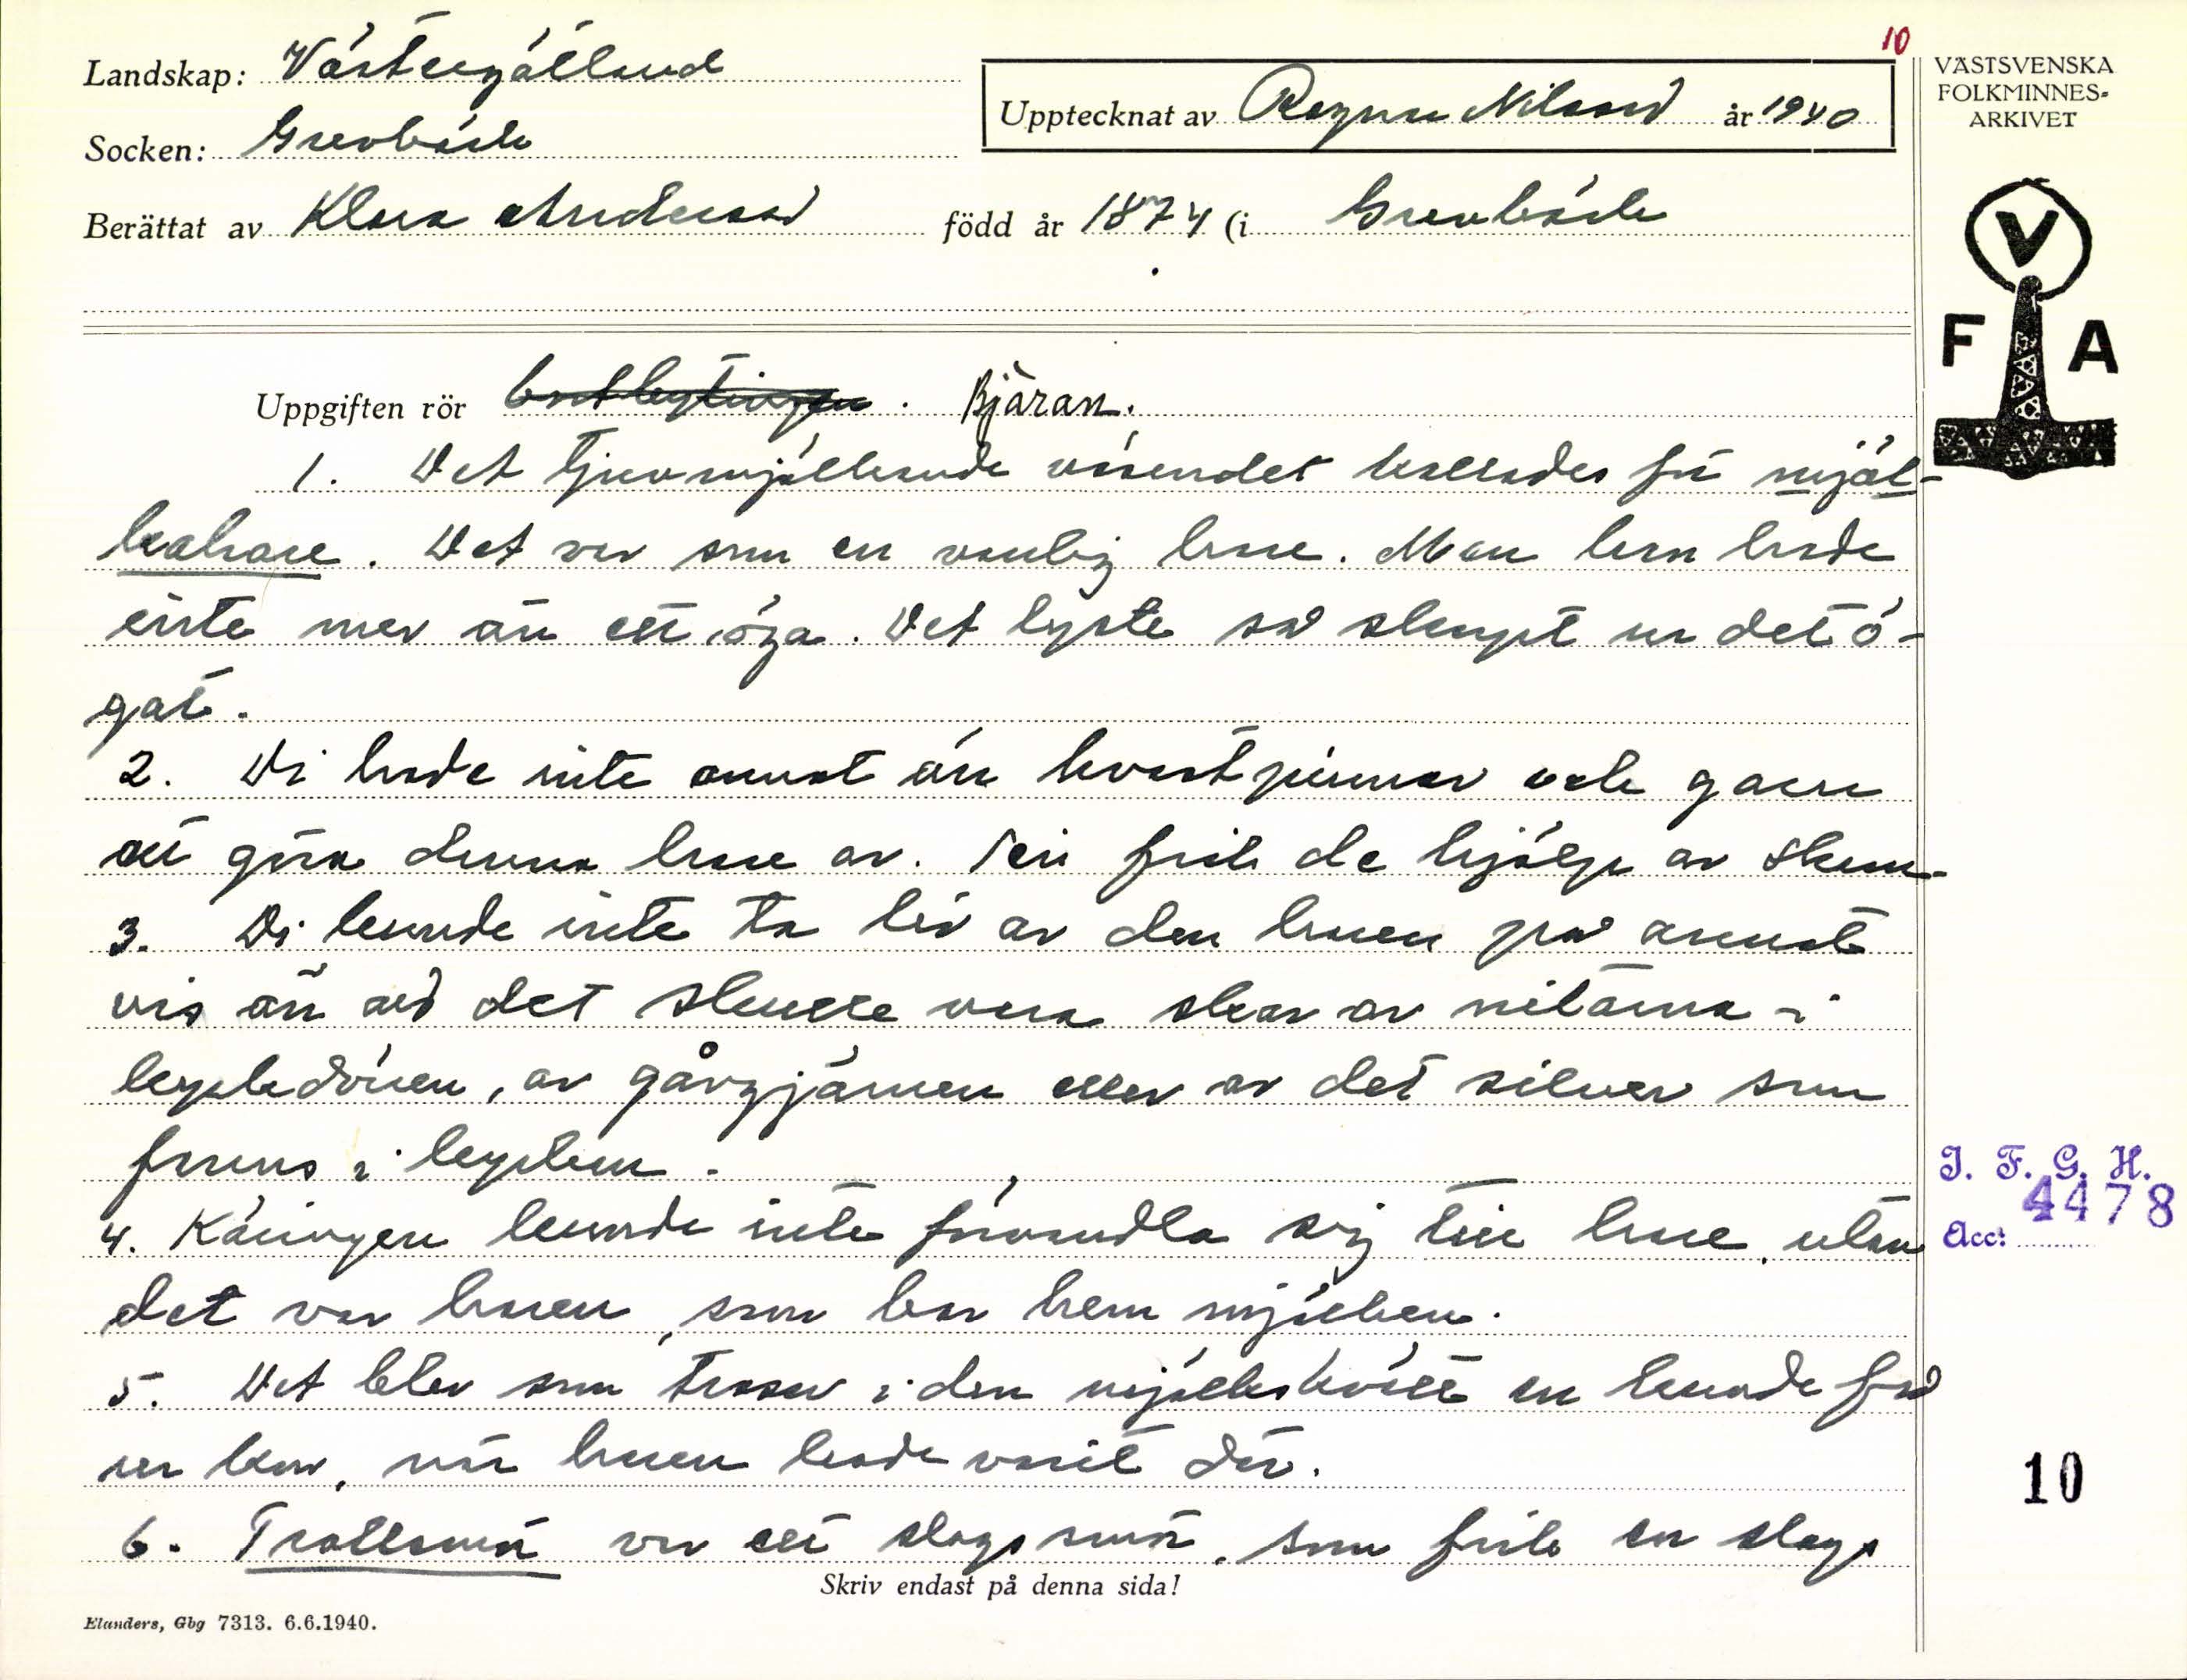 10
Landskap: Västergötland
VÄSTSVENSKA
FOLKMINNES-
ARKIVET
Upptecknat av Ragnar Nilsson år 1940
Socken: Grevbäck
Berättat av Klara Andersson född år 1874 (i Grevbäck
V
F A
Uppgiften rör Bjäran.
1. Det tjuvmjölkande väsendet kallades för mjöl-
kahare. Det var som en vanlig hare. Men han hade
inte mer än ett öga. Det lyste så skarpt ur det ö-
gat.
2. Di hade inte annat än kvastpinnar och garn
att göra denna hare av. Sen fick de hjälp av
3. Di kunde inte ta liv av den haren på annat
vis än att det skulle vara skar av nitarna i
kyrkdören, av gångjärnen eller av det silver som
fanns i kyrkan.
4. Käringen kunde inte förvandla sig till hare, utan
det var haren, som bar hem mjölken.
5. Det blev som trasor i den mjölk en kunde få
ur kon, när haren hade varit där.
6. Trollsmör var ett slags smör, som fick en slags
Skriv endast på denna sida!
Elanders, Gbg 7313. 6.6.1940.
I. F. G. H.
Acc: 4478
10